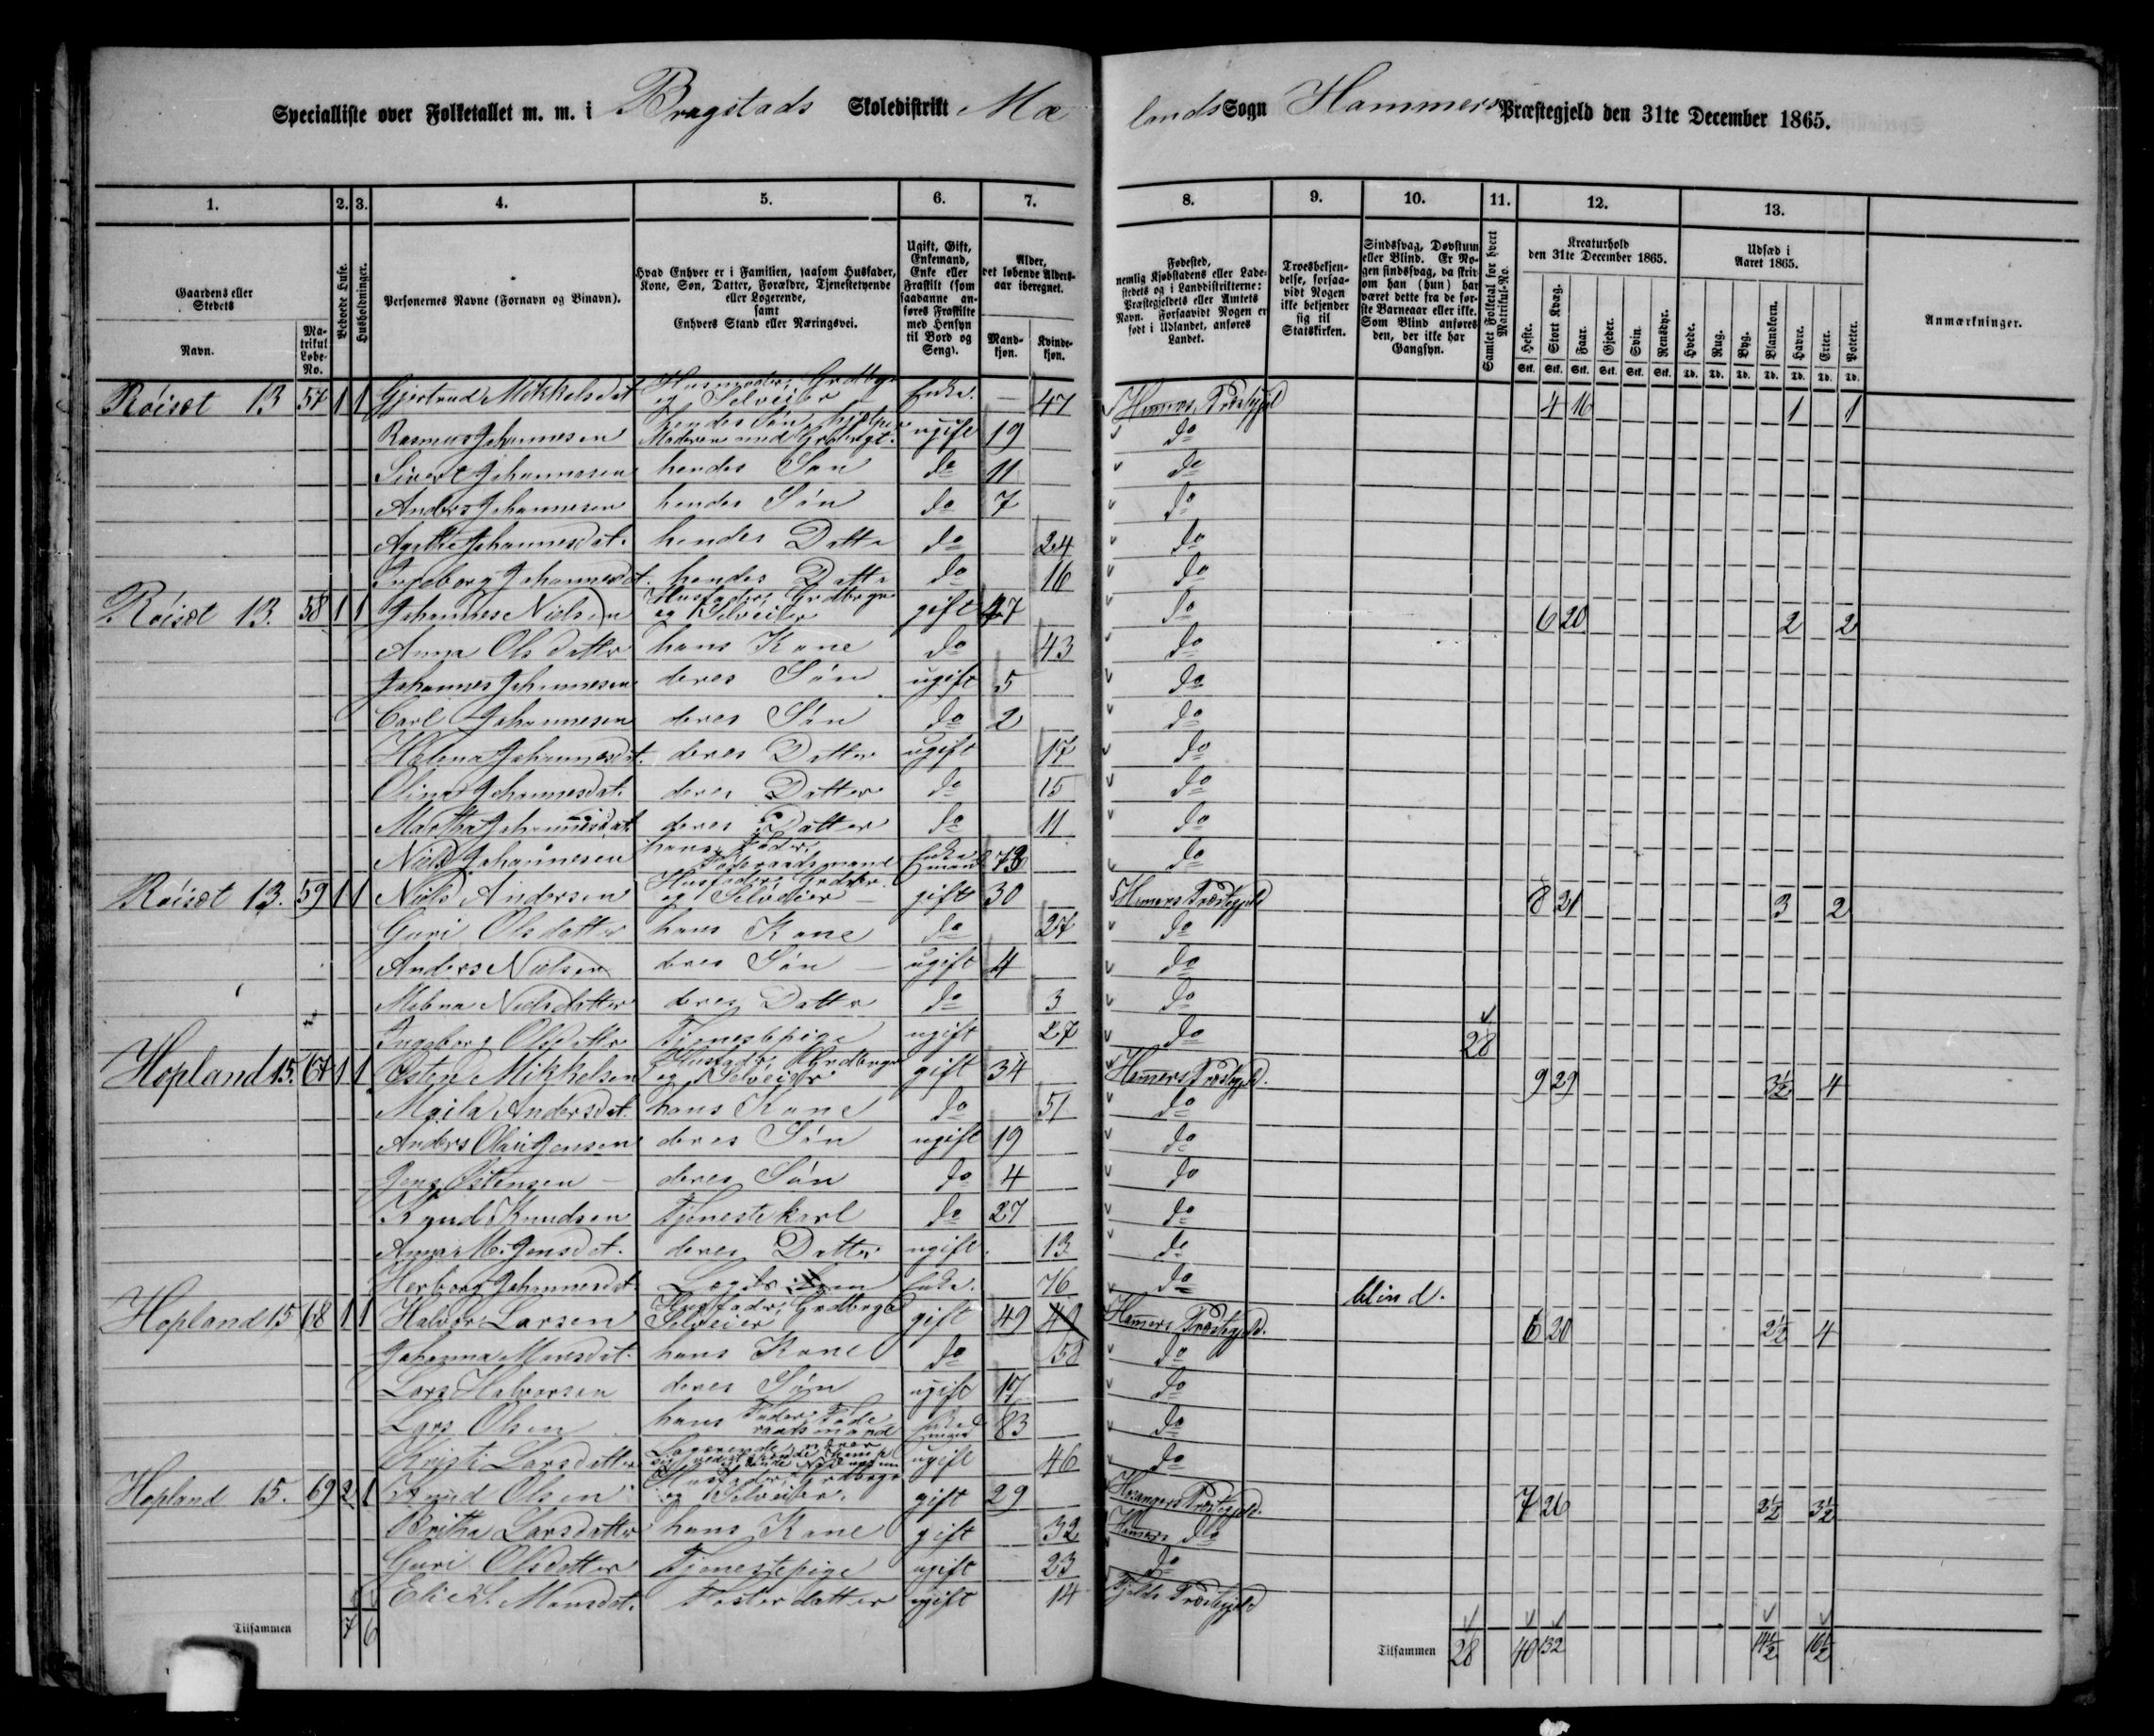 Specialliste over Folketallet m. m. i Bragstads Skoledistrikt Mælands Sogn Hammers Præstegjeld den 31te December 1865.
1. 2. 3. 4. 5. 6. 7. 8. 9. 10. 11. 12. 13.
Gaardens eller Stedets
Navn.
Matrikul Løbe-No.
Beboede Huse.
Husholdninger.
Personernes Navne (Fornavn og Binavn).
Hvad Enhver er i Familien, saasom Husfader, Kone, Søn, Datter, Forældre, Tjenestetyende eller Logerende, samt Enhvers Stand eller Næringsvei.
Ugift, Gift, Enkemand, Enke eller Fraskilt (som saadanne anføres Fraskilte med Hensyn til Bord og Seng).
Alder, det løbende Aldersaar iberegnet.
Mandkjøn.
Kvindekjøn.
Fødested, nemlig Kjøbstadens eller Ladestedets og i Landdistrikterne: Præstegjeldets eller Amtets Navn. Forsaavidt Nogen er født i Udlandet, anføres Landet.
Troesbekjendelse, forsaavidt Nogen ikke bekjender sig til Statskirken.
Sindssvag, Døvstum eller Blind. Er Nogen sindssvag, da skriv om han (hun) har været dette fra de første Barneaar eller ikke. Som Blind anføres den, der ikke har Gangsyn.
Samlet Folketal for hvert Matrikul-No.
Kreaturhold den 31te December 1865.
Heste. Stort Kvæg. Faar. Gjeder. Svin. Rensdyr.
Stk. Stk. Stk. Stk. Stk. Stk.
Udsæd i Aaret 1865.
Hvede. Rug. Byg. Blandkorn. Havre. Erter. Poteter.
Td. Td. Td. Td. Td. Td. Td.
Anmærkninger.
Röisæt 13 57 1 1 Gjertrud Mikkelsdat Husmoder, Grdbgr og Selveier Enke. 47 Hamers Præstegjeld 4 16 1 1
Rasmus Johannesen hendes Sön, hjelper Moderen med Grdbrgt. ugift 19 do
Sivert Johannesen hendes Sön do 11 do
Anders Johannesen hendes Sön do 7 do
Agathe Johannesdat. hendes Datter do 24 do
Ingeborg Johannesdat. hendes Datter do 16 do
Röisæt 13. 58 1 1 Johannes Nielsen Husfader, Grdbrgr og Selveier gift 47 do 6 20 2 2
Anna Olsdatter hans Kone do 43 do
Johannes Johannesen deres Sön ugift 5 do
Carl Johannesen deres Sön do 2 do
Helena Johannesdat. deres Datter ugift 17 do
Olina Johannesdat. deres Datter do 15 do
Martha Johannesdat. deres Datter do 11 do
Niels Johannesen hans Fader, Föderaadsmand Enkemand 73 do
Röisæt 13. 59 1 1 Niels Andersen Husfader, Grdbr. og Selveier gift 30 Hamers Præstegjeld 8 21 3 2
Guri Olsdatter hans Kone do 27 do
Anders Nielsen deres Sön ugift 4 do
Malena Nielsdatter deres Datter do 3 do
Ingeborg Olsdatter Tjenestepige ugift 27 do 28
Hopland 15. 67 1 1 Østen Mikkelsen Husfader, Grdbrgr og Selveier gift 34 Hamers Præstegjeld. 9 29 3½ 4
Andersdat. hans Kone do 51 do
Anders Olai Jensen deres Sön ugift 19 do
Jens Østensen deres Sön do 4 do
Knud Knudsen Tjenestekarl do 27 do
Anna M. Jensdat. deres Datter ugift 13 do
Herborg Johannesdat. Enke. 76 do blind.
Hopland 15 68 1 1 Halvor Larsen Husfader, Grdbrgr Selveier gift 49 Hamers Præstegjeld. 6 20 2½ 4
Johanna Monsdat. hans Kone do 58 do
Lars Halvorsen deres Sön ugift 17 do
Lars Olsen hans Fader, Föderaadsmand Enkemand 83 do
Kristi Larsdatter Logerende, ugift 46 do
Hopland 15. 69 2 1 Knud Olsen Husfader, Grdbrgr og Selveier. gift 29 Hosangers Præstegjeld. 7 26 2½ 3½
Britha Larsdatter hans Kone gift 32 Hamers do
Guri Olsdatter Tjenestepige ugift 23 do
Monsdat. Fosterdatter ugift 14 Fjelds Præstegjeld
Tilsammen 7 6
Tilsammen 28 40 132 14½ 16½